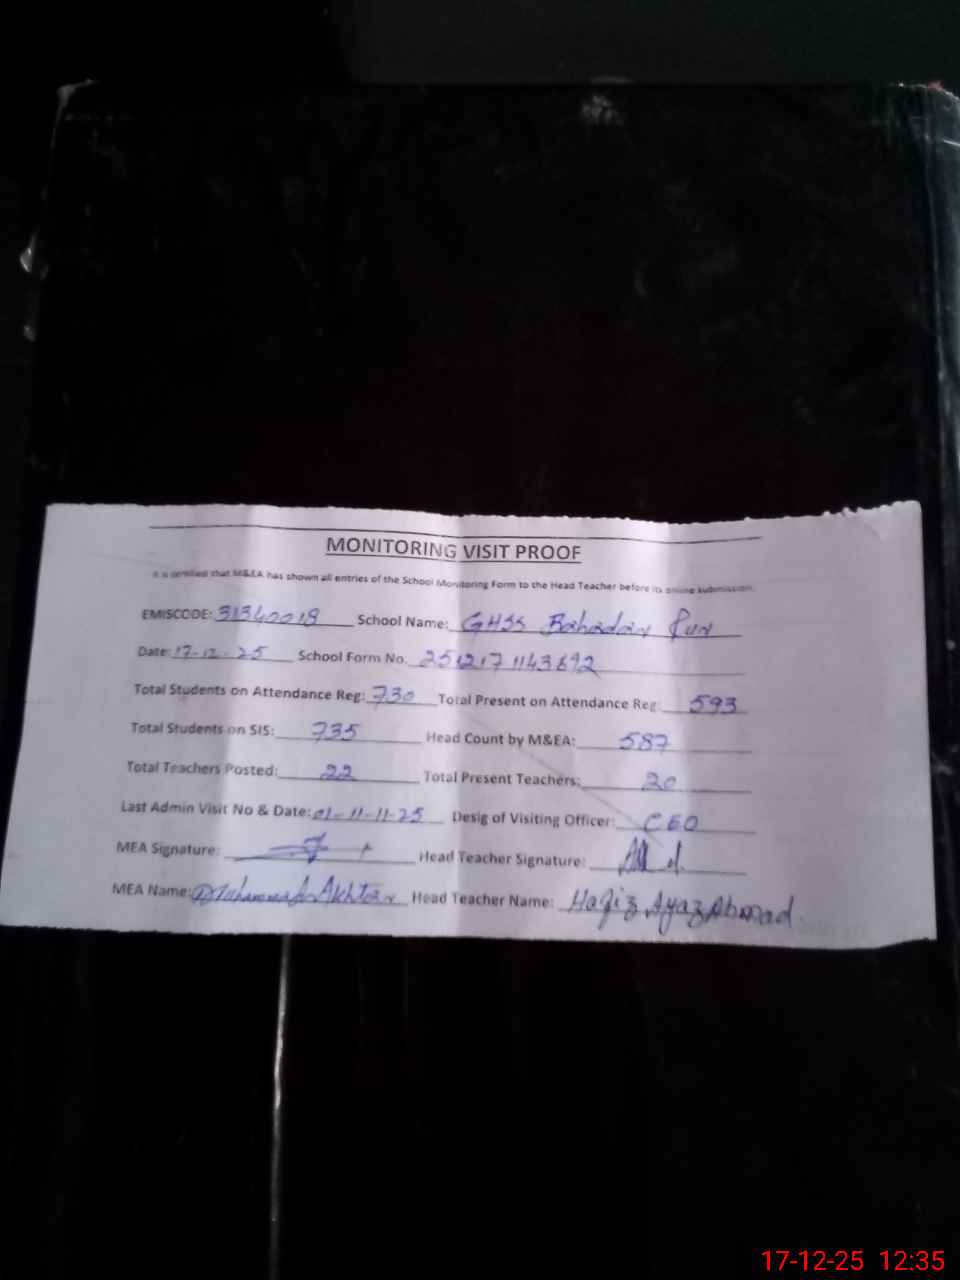 MONITORING VISIT PROOF
It is certified that M&EA has shown all entries of the School Monitoring Form to the Head Teacher before its online submission.
EMISCODE: 31340018 School Name: GHSS Bahadar Pur
Date: 17-12-25 School Form No. 2512171143692
Total Students on Attendance Reg: 730 Total Present on Attendance Reg: 593
Total Students on SIS: 735 Head Count by M&EA: 587
Total Teachers Posted: 22 Total Present Teachers: 20
Last Admin Visit No & Date: 01-11-11-25 Desig of Visiting Officer: CEO
MEA Signature: Head Teacher Signature:
MEA Name: Muhammad Akhtar Head Teacher Name: Hafiz Ayaz Ahmad
17-12-25 12:35